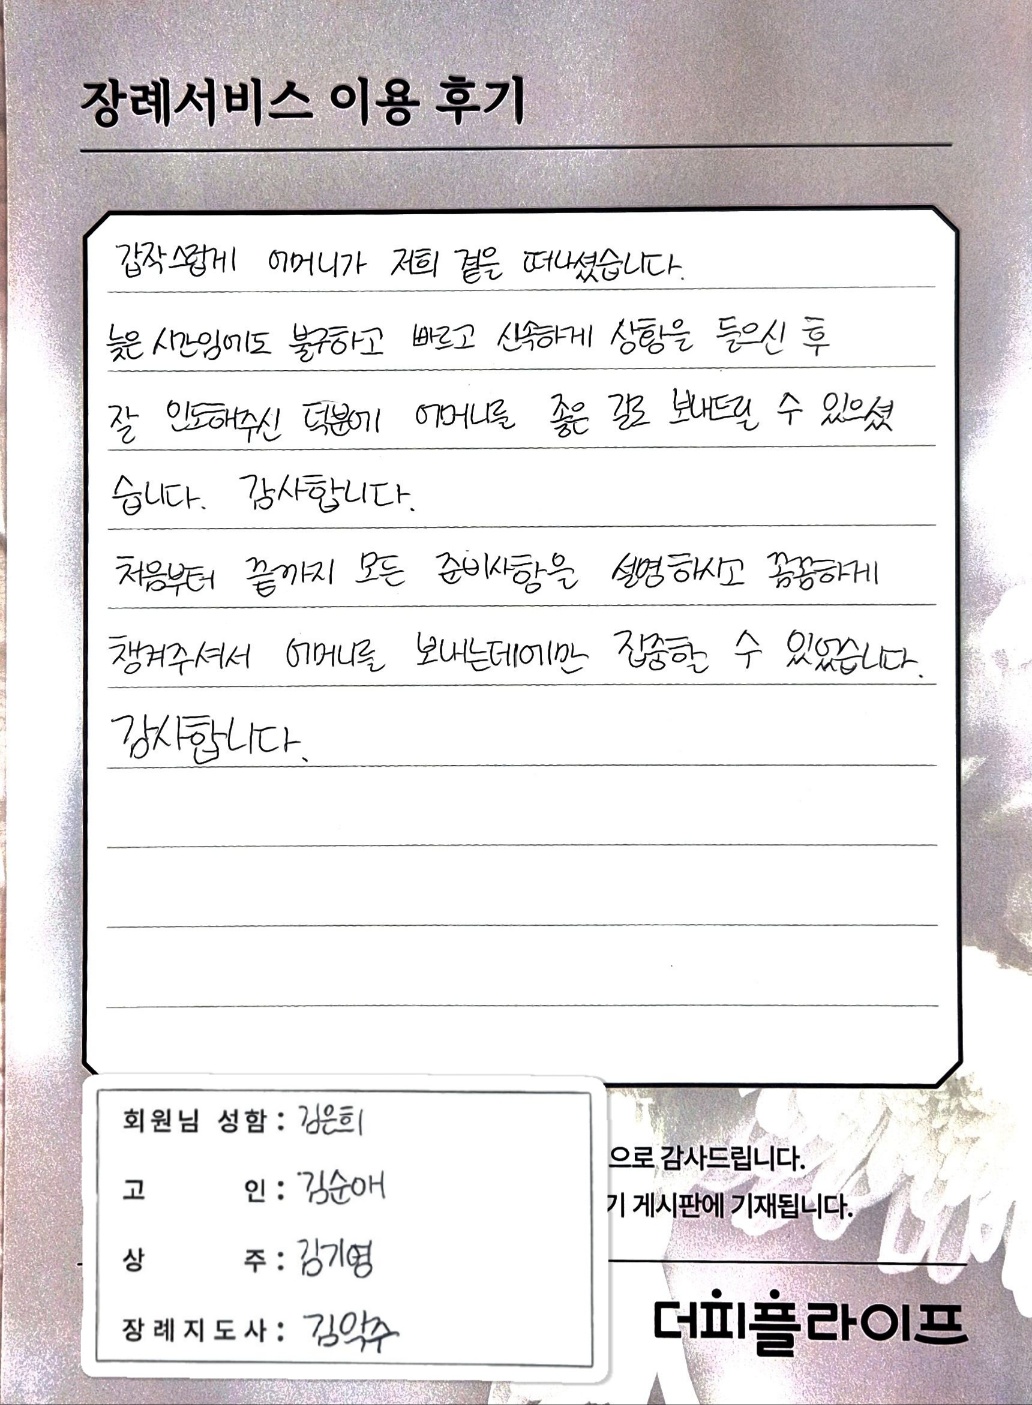 장례서비스 이용 후기
갑작스럽게 어머니가 저희 곁을 떠나셨습니다.
늦은 시간임에도 불구하고 빠르고 신속하게 상황을 들으신 후
잘 인도해주신 덕분에 어머니를 좋은 길로 보내드릴 수 있으셨
습니다. 감사합니다.
처음부터 끝까지 모든 준비사항을 설명하시고 꼼꼼하게
챙겨주셔서 어머니를 보내는데에만 집중할 수 있었습니다.
감사합니다.
회원님 성함 : 김은희
고 인 : 김순애
상 주 : 김기영
장례지도사 : 김악주
으로 감사드립니다.
기 게시판에 기재됩니다.
더피플라이프